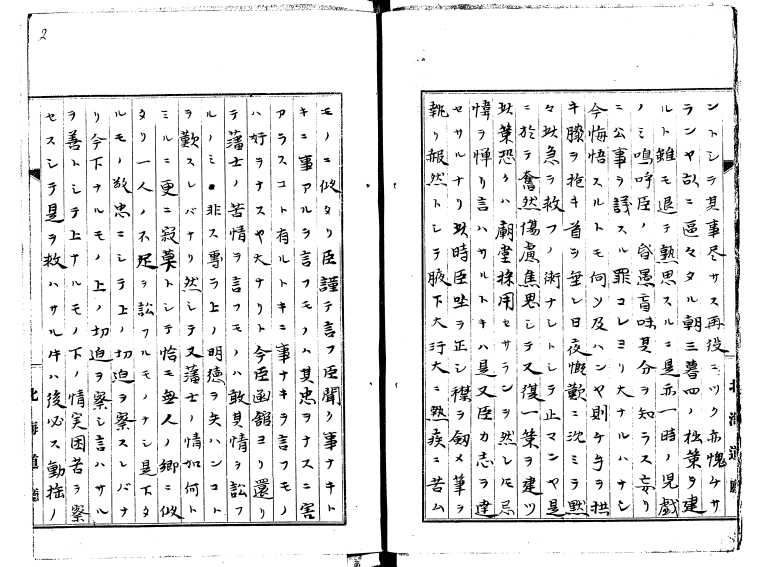 ントシテ其事尽サス再役ニツク亦愧ケサ
ランヤ故ニ區々タル朝三暮四ノ拙策ヲ建
ルト雖モ退テ熟思スルニ是亦一時ノ児戯
ノミ嗚呼臣ノ昏愚盲味其分ヲ知ラス妄リ
ニ公事ヲ議スル罪コレヨリ大ナルハナシ
今悔悟スルトモ何ソ及ハンヤ則ケ手ヲ拱
キ膝ヲ抱キ首ヲ垂レ日夜慨歎ニ沈ミヲ黙
々此急ヲ救フノ術ナシトシテ止マンヤ是
ニ於テ奮然傷慮焦思シテ又復一策ヲ建ツ
此策恐クハ廟堂採用セサランヲ然レモ忌
憚ヲ憚リ言ハサルトキハ是又臣カ志ヲ達
セサルナリ此時臣坐ヲ正シ襟ヲ斂メ筆ヲ
執リ赧然トシテ腋下大汗大ニ熱疾ニ苦ム
北海道廳
2
モノニ似タリ臣謹テ言フ臣聞ク事ナキト
キニ事アルヲ言フモノハ其忠ヲナスニ害
アラスコト有ルトキニ事ナキヲ言フモノ
ハ好ヲナスヤ大ナリト今臣函舘ヨリ還リ
テ藩士ノ苦情ヲ言フモノハ敢其情ヲ訟フ
ルノミニ非ス專ラ上ノ明徳ヲ失ハンコト
ヲ歎スレバナリ然シテ又藩士ノ情如何ト
ミルニ更ニ寂莫トシテ恰モ無人ノ郷ニ似
タリ一人ノ不足ヲ訟フルモノナシ是下タ
ルモノノ敦忠ニシテ上ノ切迫ヲ察スレバナ
リ今下ナルモノ上ノ切迫ヲ察シ言ハサル
ヲ善トシテ上ナルモノ下ノ情実困苦ヲ察
セスシテ是ヲ救ハサル片ハ後必ス動揺ノ
北海道廳